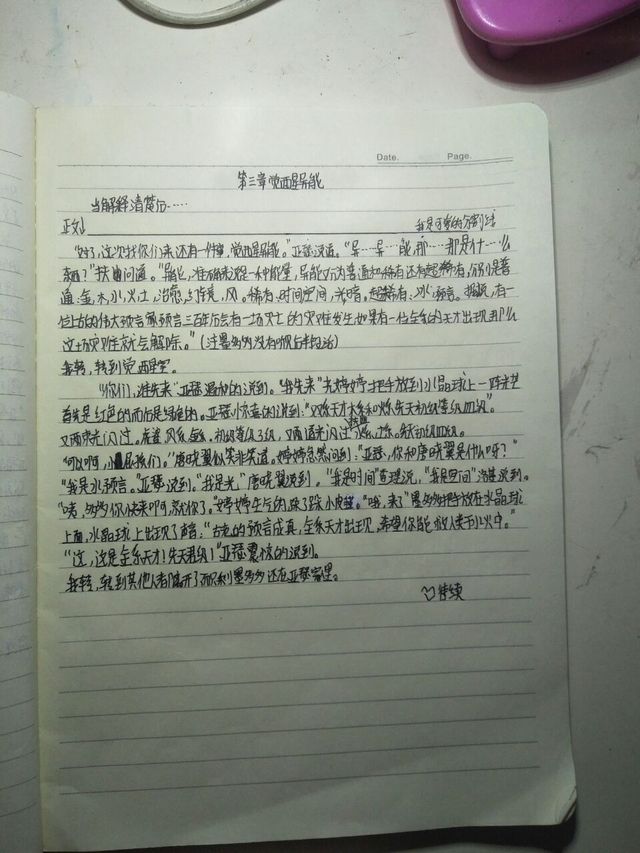 Date. Page.
第三章觉醒异能
当解释清楚后……
正文 我是可爱的分割线
"好了,这次找你们来还有一件事,觉醒异能。"亚瑟说道。"异……异……能,那……那是什……么
东西?"扶幽问道。"异能,准确来说是一种能量,异能分为普通和稀有还有超稀有,你们是普
通:金,木,水,火,土,治愈,风。稀有:时间,空间,光,暗,超稀有:冰,预言。据说,有一
位上古的伟大预言家预言三百年后会有一场灭亡的灾难发生,如果有一位全系的天才出现,那么
这场灾难就会解除。"(注:墨多多没有听后半句话)
我转,转到觉醒室。
"你们,谁先来"亚瑟温柔的说到。"我先来"尧婷婷把手放到水晶球上一阵光芒
首先是红色的而后是绿色的。亚瑟惊喜的说到:"双系天才木系和火系先天初级等级四级"。
又两束光闪过。虎鲨,风系,金系,初级等级3级,又两道光闪过扶幽,系,系,初级四级。
"可以啊,小屁孩们。"唐晓翼似笑非笑道。婷婷忽然问到:"亚瑟,你和唐晓翼是什么呀?"
"我是冰,预言。"亚瑟说到。"我是光。"唐晓翼说到。"我是时间"查理说,"我是空间"洛基说到。
"喂,多多你快来啊,就你了。"婷婷生气的跺了跺小皮鞋。"哦,来了"墨多多把手放在水晶球
上面,水晶球上出现了声音:"古老的预言成真,全系天才出现,希望你能救人类于水火中。"
"这,这是全系天才!先天君级!"亚瑟震惊的说到。
我转,转到其他人都离开了而只剩墨多多还在亚瑟家里。
待续